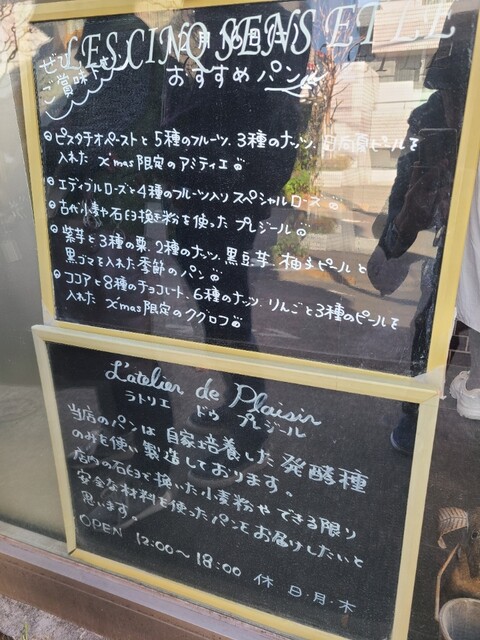 LES CINQ SENS ET LE
ぜひ
ご賞味
おすすめパン
ピスタチオペーストと5種のフルーツ、3種のナッツ、日向夏ピールを
入れた X'mas限定のアミティエ
エディブルローズと4種のフルーツ入りスペシャルローズ
古代小麦や石臼挽き粉を使ったプレジール
紫芋と3種の栗、2種のナッツ、黒豆芋、柚子ピールと
黒ゴマを入れた季節のパン
ココアと8種のチョコレート、6種のナッツ、りんごと3種のピールを
入れた X'mas限定のクグロフ
L'atelier de Plaisir
ラトリエ ドゥ プレジール
当店のパンは自家培養した発酵種
のみを使い製造しております。
店内の石臼で挽いた小麦粉やできる限り
安全な材料を使ったパンをお届けしたいと
思います。
OPEN 12:00～18:00 休 日・月・木